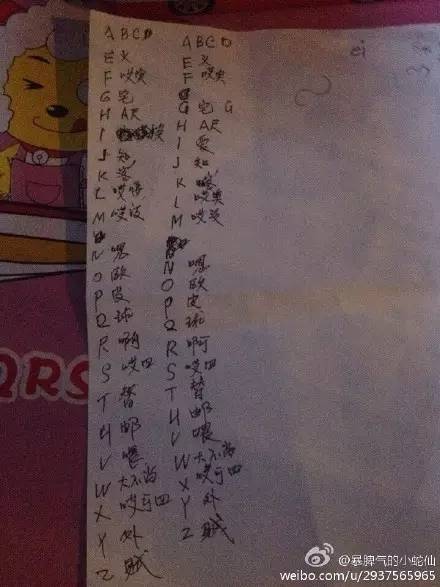 A B C D
E 义
F 哎
G 宅
H A尺
I
J 知
K 客
L 哎
M 哎没
N 嗯
O 欧
P 皮
Q 球
R 啊
S 哎四
T 替
U 邮
V 喂
W 大不当
X 哎可四
Y 外
Z 贼
A B C D
E 义
F 哎
G 宅 G
H A尺
I 爱
J 知
K
L 哎
M 哎没
N 嗯
O 欧
P 皮
Q 球
R 啊
S 哎四
T 替
U 邮
V 喂
W 大不当
X 哎可四
Y 外
Z 贼
ei
2
3
QRS
@暴脾气的小蛇仙
weibo.com/u/2937565965